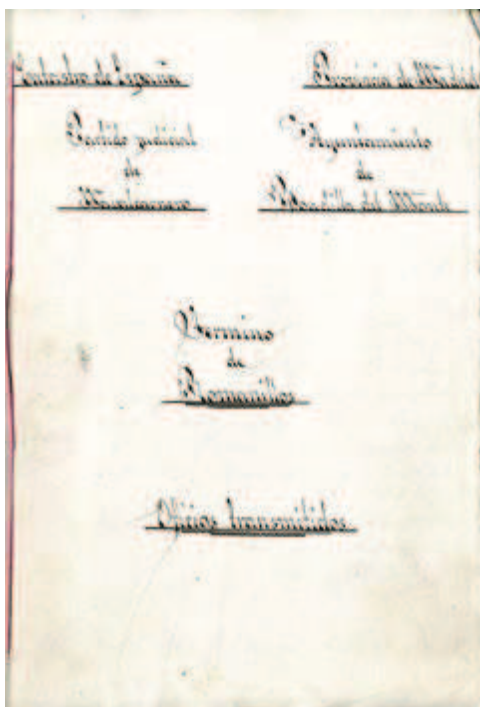 Catastro de España
Provincia de Madrid
Partido judicial
de
Navalcarnero
Ayuntamiento
de
Boadilla del Monte
Termino
de
Romanillos
Oficios transmitidos